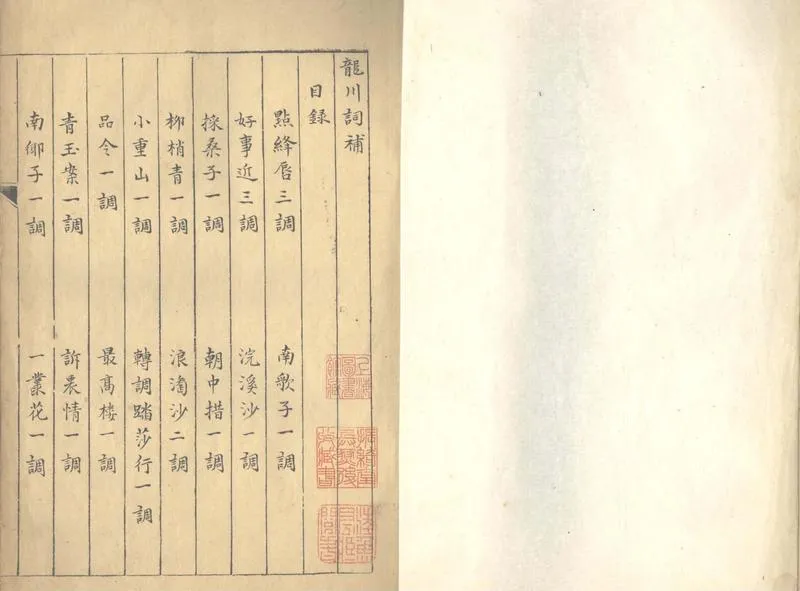 龍川詞補
目録
點絳唇三調 南歌子一調
好事近三調 浣溪沙一調
採桑子一調 朝中措一調
柳梢青一調 浪淘沙二調
小重山一調 轉調踏莎行一調
品令一調 最高樓一調
青玉案一調 訴衷情一調
南鄉子一調 一叢花一調